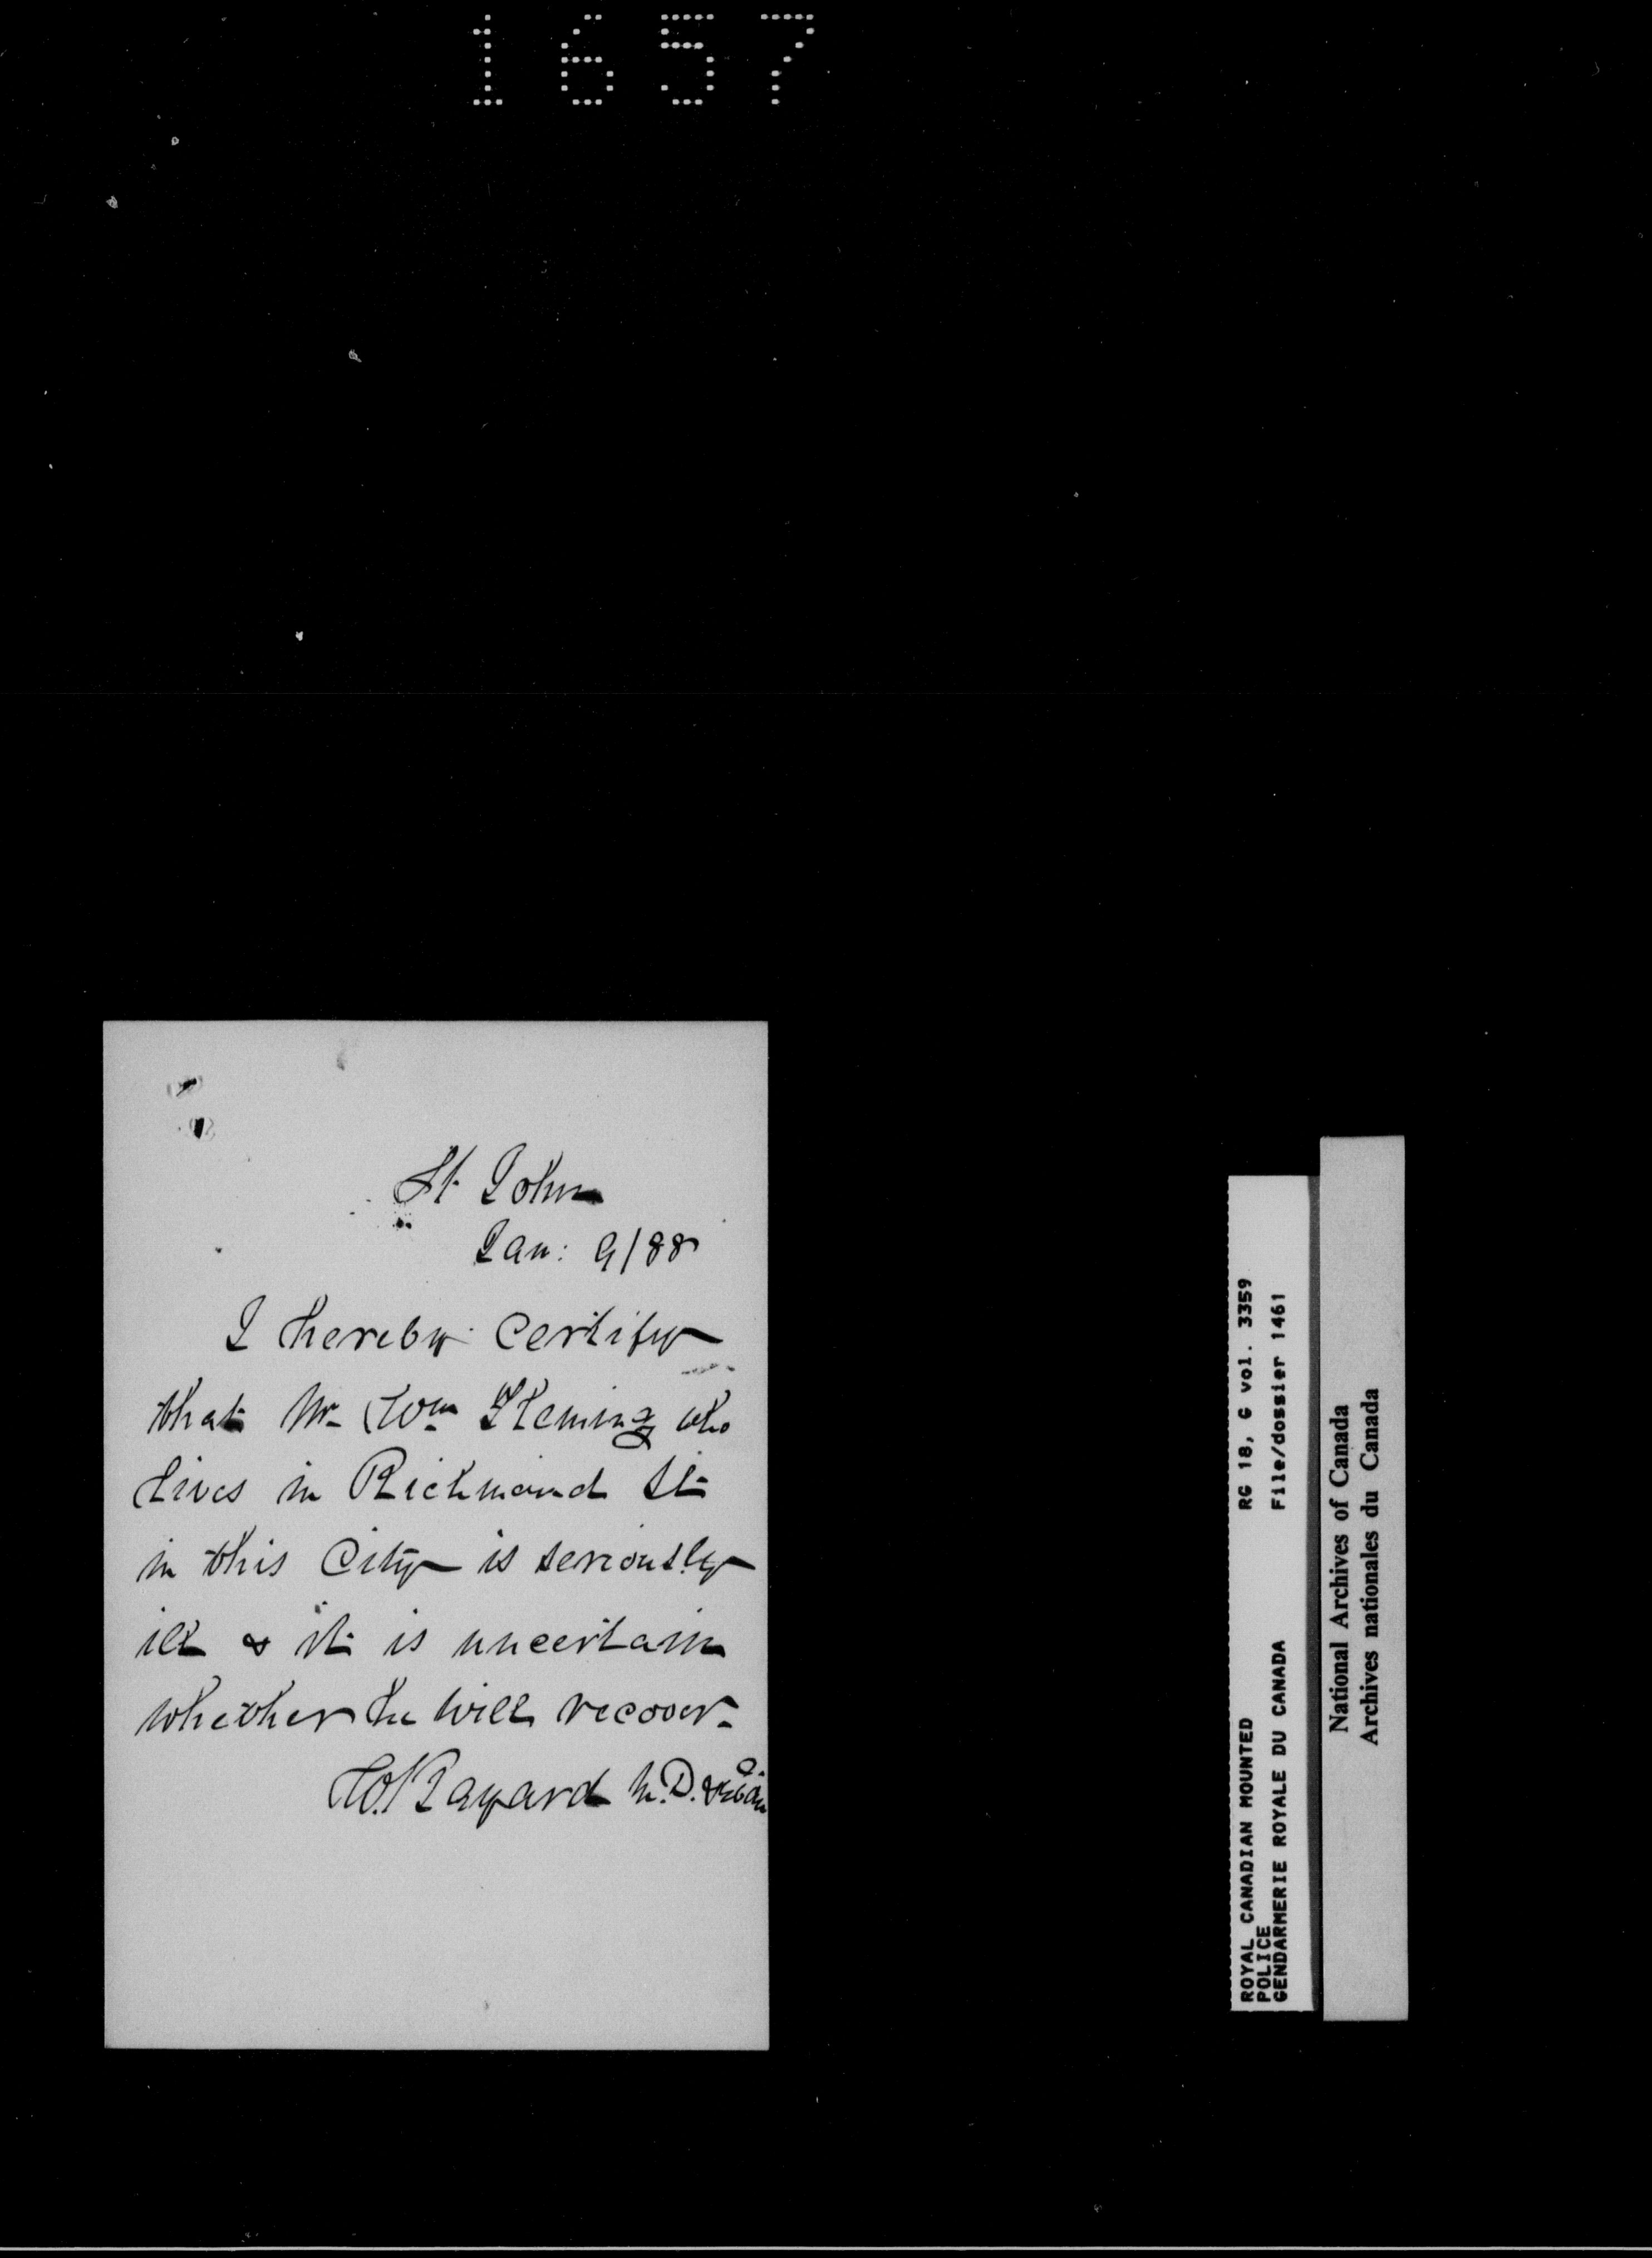 1657
St. John
Jan: 9/88
I hereby certify
that Mr. Wm Fleming who
lives in Richmond St.
in this City is seriously
ill & it is uncertain
whether he will recover.
W. Bayard M.D.
ROYAL CANADIAN MOUNTED RG 18, G vol. 3359
POLICE File/dossier 1461
GENDARMERIE ROYALE DU CANADA
National Archives of Canada
Archives nationales du Canada